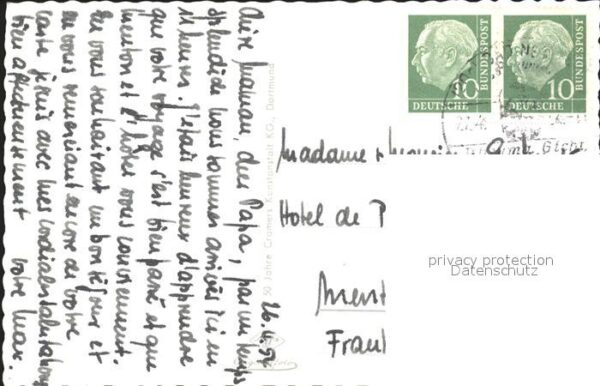 26.4.57
Chère Maman, cher Papa, par un temps
splendide nous sommes arrivés ici en
heures. J'étais heureux d'apprendre
que votre voyage s'est bien passé et que
Menton et l'hôtel vous conviennent.
En vous souhaitant un bon séjour et
en vous remerciant encore de votre
carte je suis avec mes cordiales salutations
bien affectueusement votre Max.
50 Jahre Cramers Kunstanstalt KG., Dortmund
10 BUNDESPOST
DEUTSCHE
10 BUNDESPOST
DEUTSCHE
Madame + Monsieur
Hotel de P
Ment
Frank
privacy protection
Datenschutz